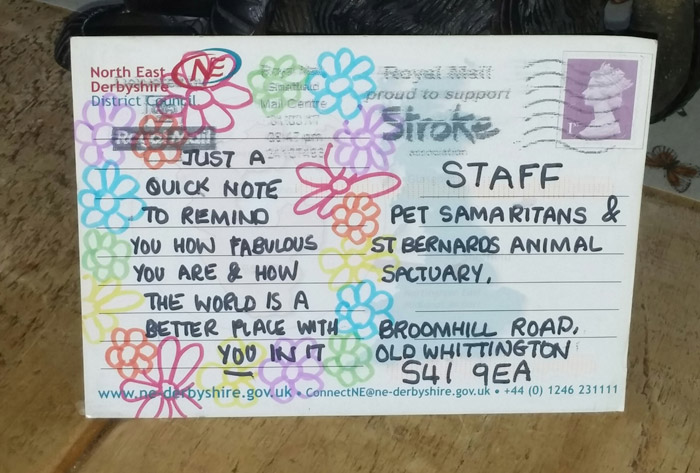 North East
Derbyshire
District Council
NE
Royal Mail
Mail Centre
Royal Mail
proud to support
Stroke
association
1st
JUST A
QUICK NOTE
TO REMIND
YOU HOW FABULOUS
YOU ARE & HOW
THE WORLD IS A
BETTER PLACE WITH
YOU IN IT
STAFF
PET SAMARITANS &
ST BERNARDS ANIMAL
SACTUARY,
BROOMHILL ROAD,
OLD WHITTINGTON
S41 9EA
www.ne-derbyshire.gov.uk • ConnectNE@ne-derbyshire.gov.uk • +44 (0) 1246 231111